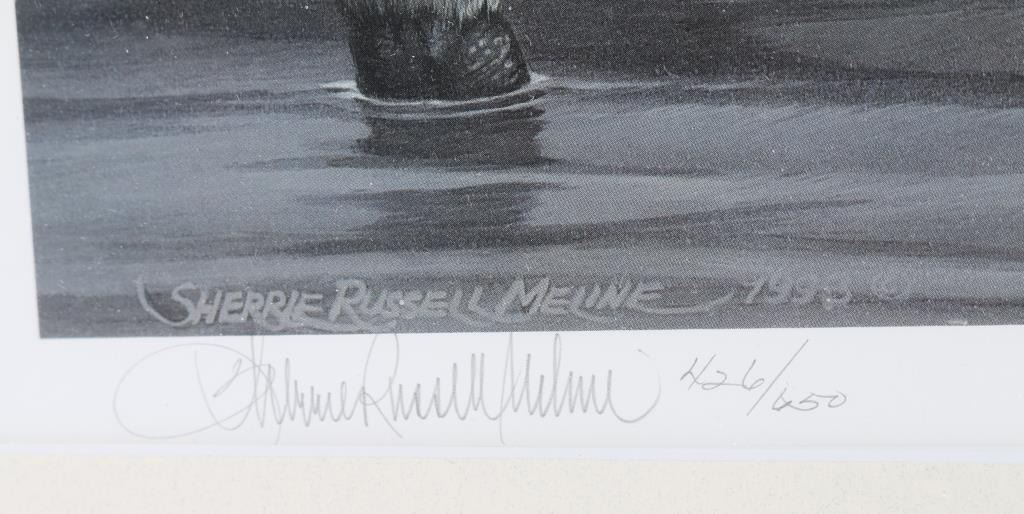 SHERRIE RUSSELL MELINE 1993 ©
Sherrie Russell Meline 426/650